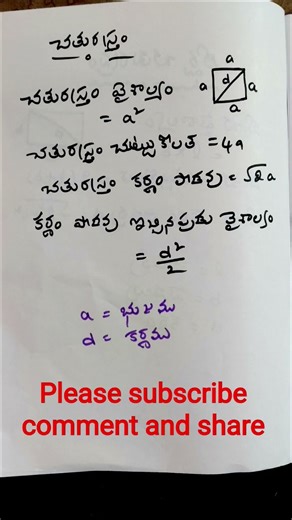 చతురస్రం
a
a d a
a
చతురస్రం వైశాల్యం
= a²
చతురస్రం చుట్టుకొలత = 4a
చతురస్రం కర్ణం పొడవు = √2 a
కర్ణం పొడవు ఇచ్చినపుడు వైశాల్యం
= d²/2
a = భుజము
d = కర్ణము
Please subscribe
comment and share